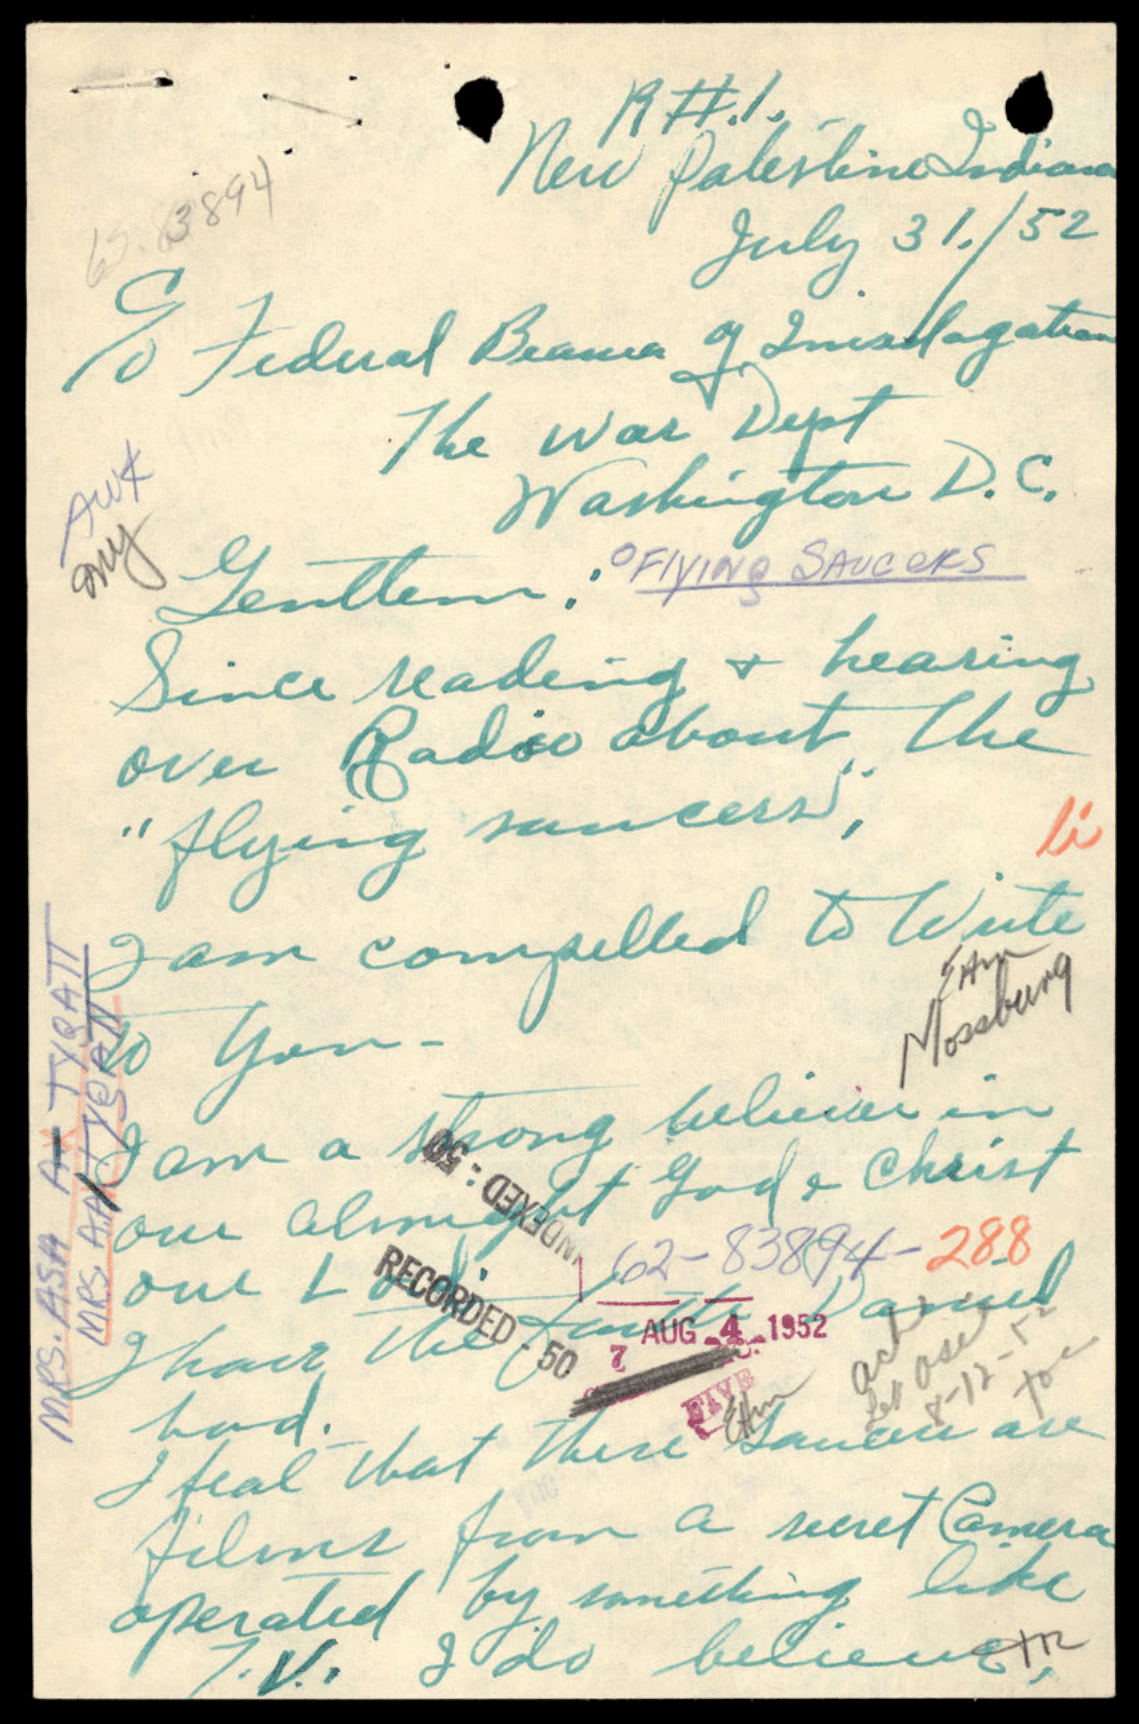 R#.1.
New Palestine Indiana
July 31./52
62-83894
C/O Federal Beaurea of Invesdagation
The War Dept
Washington D.C.
AWK
Genttlem:
FLYING SAUCERS
Since reading + hearing
over Radio about, the
"flying saucers",
I am compelled to Write
to You-
EHM
Mossburg
I am a strong believer in
our almight God & Christ
our Lord.
I have the faith Daniel
had.
I feal that these Saucers are
films from a secret Camera
operated by something like
T.V. I do believe,
INDEXED: 50
RECORDED - 50
62-83894-288
7 AUG 4 1952
FIVE
EHM
ack
8-12-52
MRS. ASA A. TYQATT
MRS. A.A. TYQATT